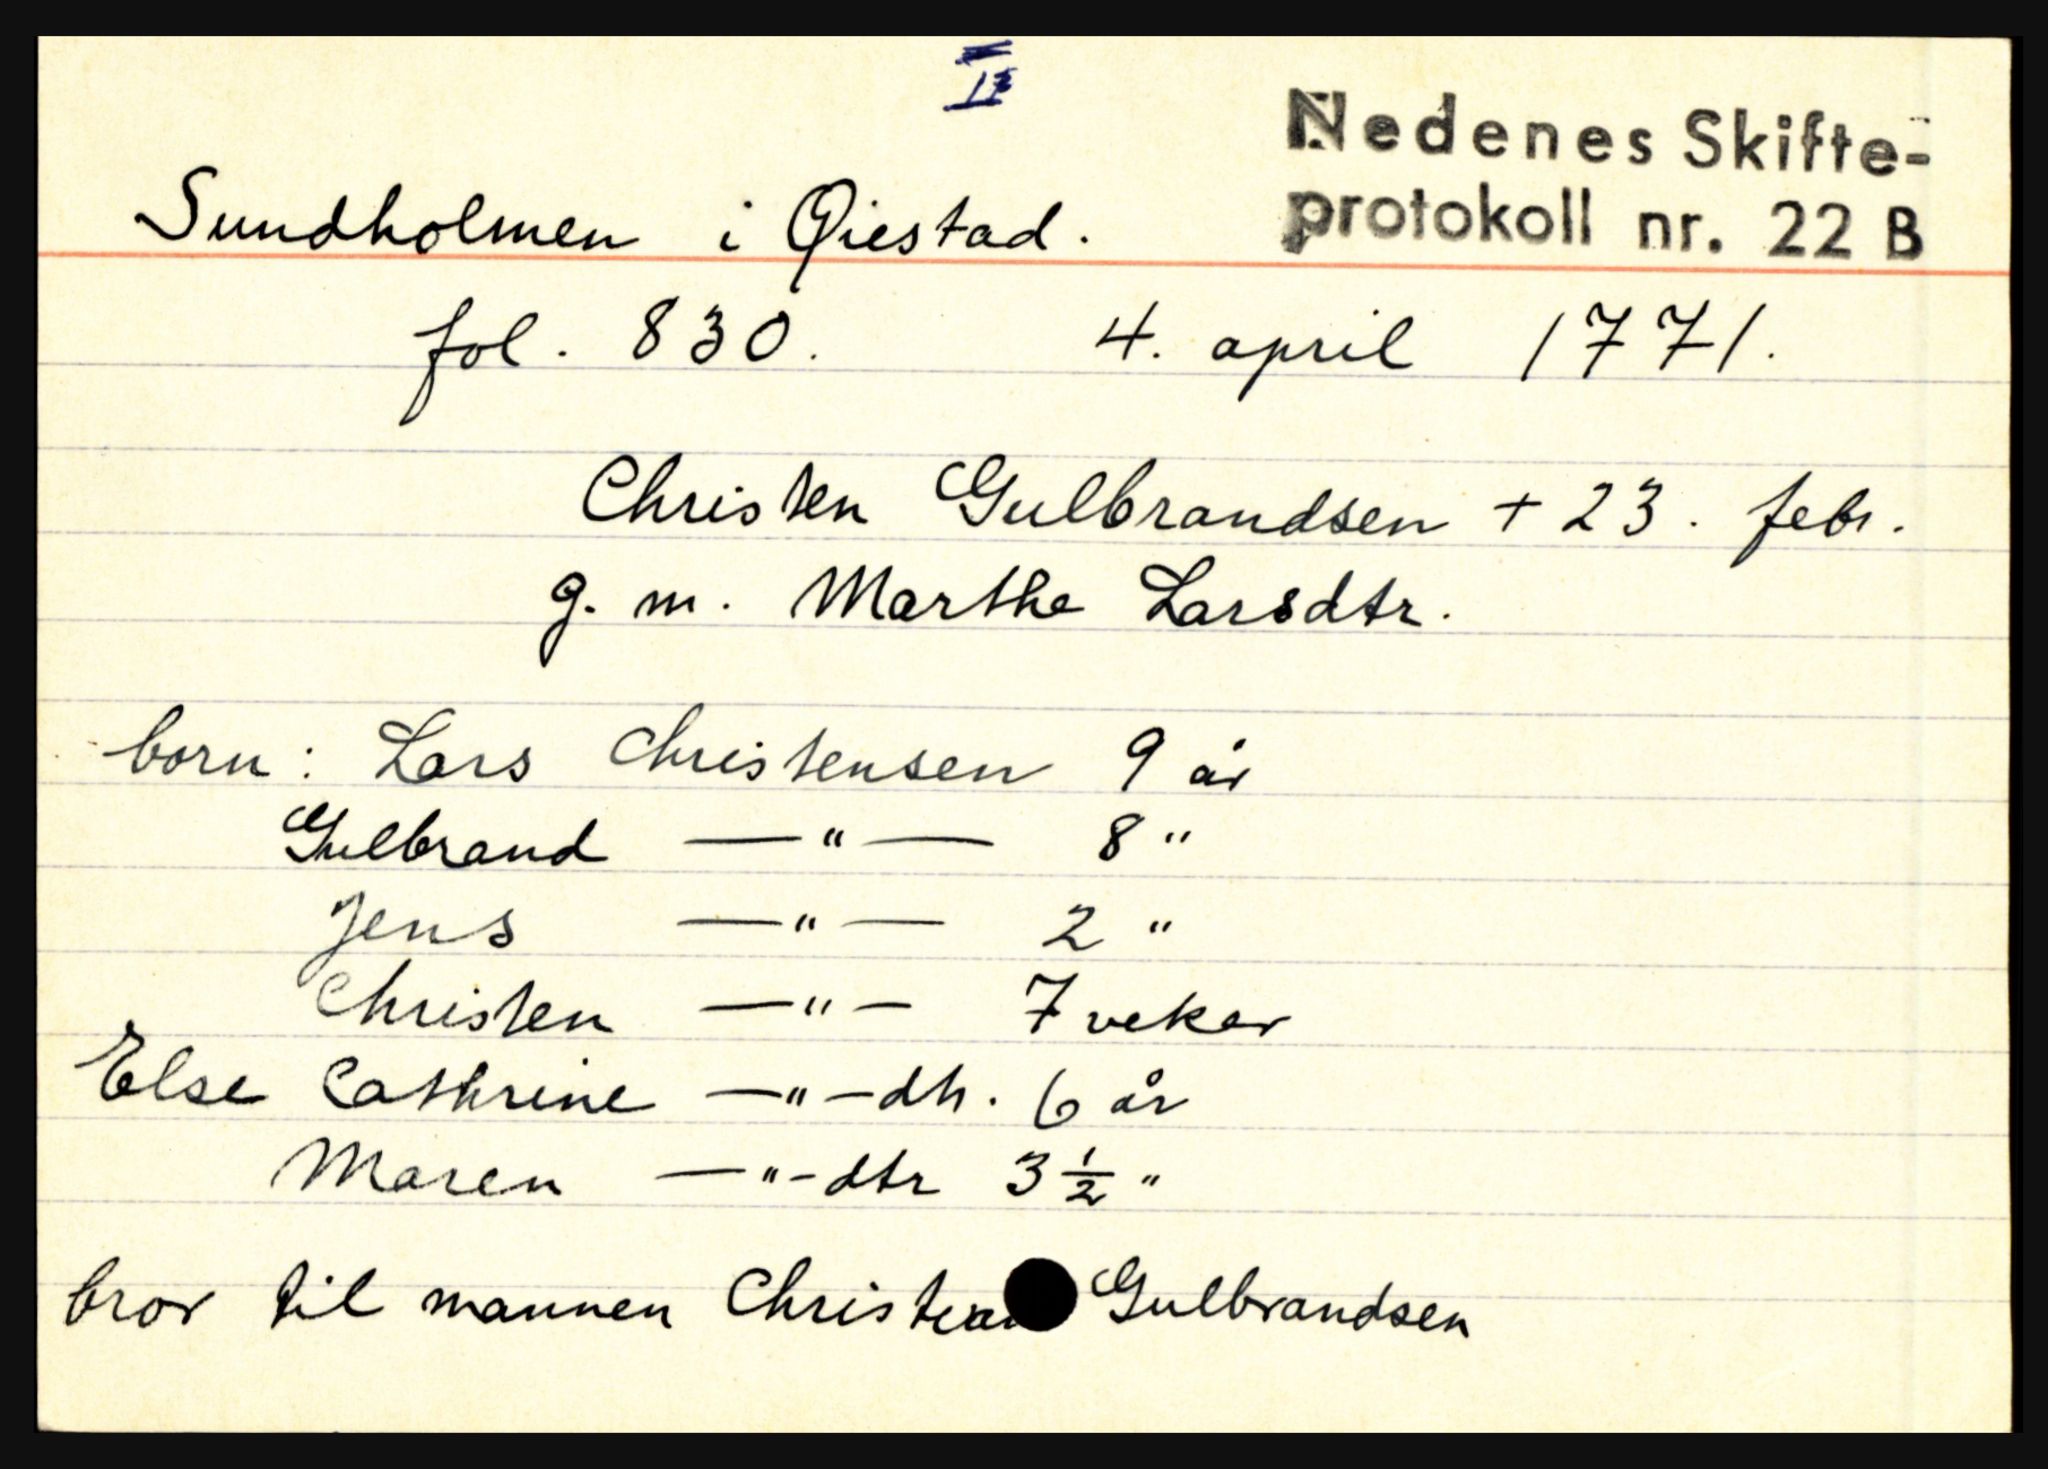 Nedenes Skifte-
protokoll nr. 22 B
Sundholmen i Øiestad.
fol. 830. 4. april 1771.
Christen Gulbrandsen + 23. febr.
g. m. Marthe Larsdtr.
born: Lars Christensen 9 år
Gulbrand —"— 8 "
Jens —"— 2 "
Christen —"— 7 veker
Else Cathrine —"—dtr. 6 år
Maren —"—dtr 3 1/2 "
bror til mannen Christian Gulbrandsen